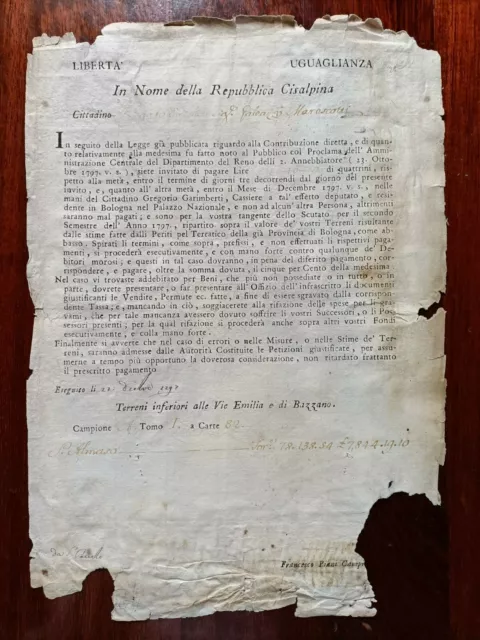 LIBERTA' UGUAGLIANZA
In Nome della Repubblica Cisalpina
Cittadino
In seguito della Legge già pubblicata riguardo alla Contribuzione diretta, e di quan-
to relativamente alla medesima fu fatto noto al Pubblico col Proclama dell' Ammi-
nistrazione Centrale del Dipartimento del Reno delli 2. Annebbiatore (23. Otto-
bre 1797. v. s.), siete invitato di pagare Lire di quattrini, ris-
petto alla metà, entro il termine di giorni tre decorrendi dal giorno del presente
invito, e quanto all' altra metà, entro il Mese di Decembre 1797. v. s., nelle
mani del Cittadino Gregorio Garimberti, Cassiere a tal' effetto deputato, e resi-
dente in Bologna nel Palazzo Nazionale, e non ad alcun' altra Persona, altrimenti
saranno mal pagati; e sono per la vostra tangente dello Scutato per il secondo
Semestre dell' Anno 1797., ripartito sopra il valore de' vostri Terreni risultante
dalle stime fatte dai Periti pel Terratico della già Provincia di Bologna, come ab-
basso. Spirati li termini, come sopra, prefissi, e non effettuati li rispettivi paga-
menti, si procederà esecutivamente, e con mano forte contro qualunque de' De-
bitori morosi; e questi in tal caso dovranno, in pena del differito pagamento, cor-
rispondere, e pagare, oltre la somma dovuta, il cinque per Cento della medesima.
Nel caso vi trovaste addebitato per Beni, che più non possediate o in tutto, o in
parte, dovrete presentare, o far presentare all' Offizio dell' infrascritto li documenti
giustificanti le Vendite, Permute ec. fatte, a fine di essere sgravato dalla corrispon-
dente Tassa; e, mancando in ciò, soggiacerete alla rifazione delle spese per li gra-
vami, che per tale mancanza avessero dovuto soffrire li vostri Successori, o li Pos-
sessori presenti; per la qual rifazione si procederà anche sopra altri vostri Fondi
esecutivamente, e colla mano forte.
Finalmente si averte che nel caso di errori o nelle Misure, o nelle Stime de' Ter-
reni, saranno admesse dalle Autorità Costituite le Petizioni giustificate, per assu-
merne a tempo più opportuno la doverosa considerazione, non ritardato frattanto
il prescritto pagamento
Eseguito li
Terreni inferiori alle Vie Emilia e di Bazzano.
Campione Tomo I. a Carte 82
78.138.34 27,84 4.11.10
Francesco